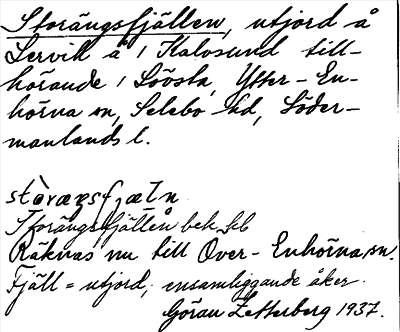 Storängsfjällen, utjord å
Lervik å 1 Kalvsund till-
hörande 1 Lövsta, Ytter-En-
hörna sn, Selebo hd, Söder-
manlands l.
stòræŋsfjæln
Storängsfjällen bek. sb
Räknas nu till Över-Enhörna sn.
Fjäll = utjord, ensamliggande åker.
Göran Zetterberg 1937.